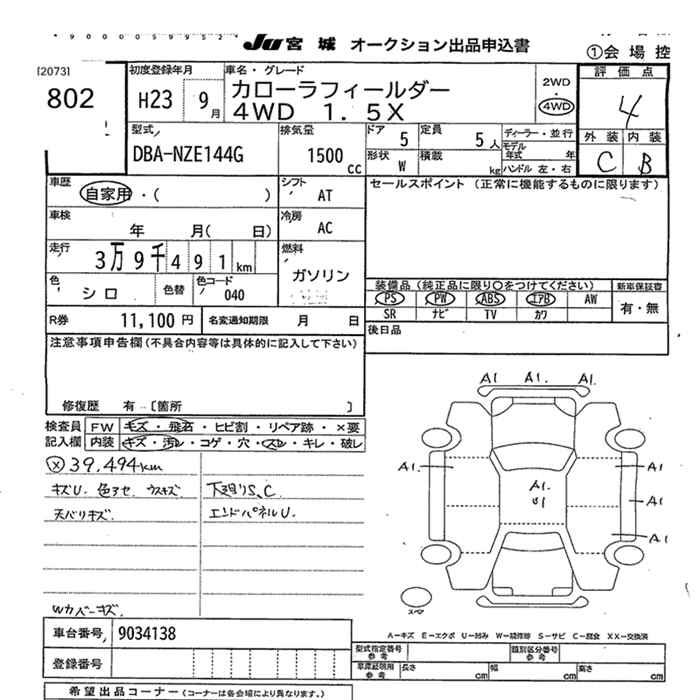 JU 宮城 オークション出品申込書
①会場控
[2073]
802
初度登録年月
H23 9月
車名・グレード
カローラフィールダー
4WD 1.5X
2WD
4WD
評価点
4
外装 内装
C B
型式
DBA-NZE144G
排気量
1500cc
ドア 5
定員 5人
形状 W
積載 kg
ディーラー・並行
モデル年式 年
ハンドル 左・右
車歴 自家用・( )
シフト AT
セールスポイント (正常に機能するものに限ります)
車検 年 月( 日)
冷房 AC
走行 3万9千491km
燃料 ガソリン
色 シロ
色替
色コード 040
装備品 (純正品に限り○をつけてください)
新車保証書
PS PW ABS エアB AW
SR ナビ TV カワ
有・無
R券 11,100円
名変通知期限 月 日
後日品
注意事項申告欄(不具合内容等は具体的に記入して下さい)
修復歴 有 〔箇所 〕
検査員記入欄
FW キズ・飛石・ヒビ割・リペア跡・×要
内装 キズ・汚レ・コゲ・穴・スレ・キレ・破レ
39,494km
キズU. 色アセ. ウスキズ
天バリキズ.
下廻りS、C
エンドパネルU.
Wカバーキズ.
A1. A1. A1.
A1. A1.
A1. A1
A1.
スペア
車台番号 9034138
登録番号
A—キズ E—エクボ U—凹み W—補修跡 S—サビ C—腐食 XX—交換済
型式指定番号 参考
類別区分番号 参考
車庫証明用 参考
長さ cm 幅 cm 高さ cm
希望出品コーナー (コーナーは各会場により異なります。)